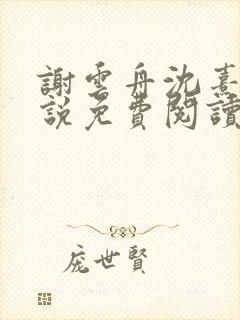 謝雲舟沈熹
說免費閱讀
龐世賢